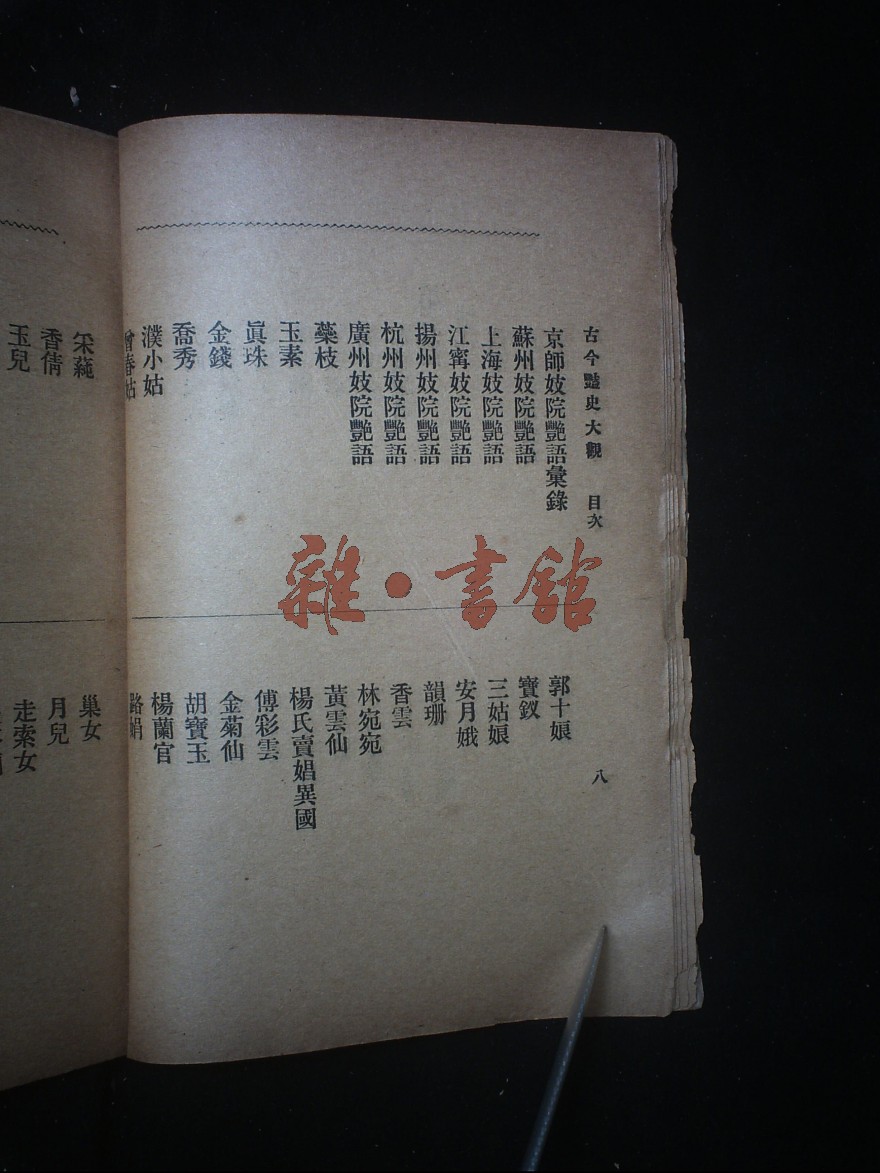 古今豔史大觀 目次
八
京師妓院艷語彙錄
蘇州妓院艷語
上海妓院艷語
江寗妓院艷語
揚州妓院艷語
杭州妓院艷語
廣州妓院艷語
藥枝
玉素
眞珠
金錢
喬秀
濮小姑
曾春姑
郭十娘
寶釵
三姑娘
安月娥
韻珊
香雲
林宛宛
黃雲仙
楊氏賣娼異國
傅彩雲
金菊仙
胡寶玉
楊蘭官
路娟
采蒓
香倩
玉兒
巢女
月兒
走索女
雜·書館